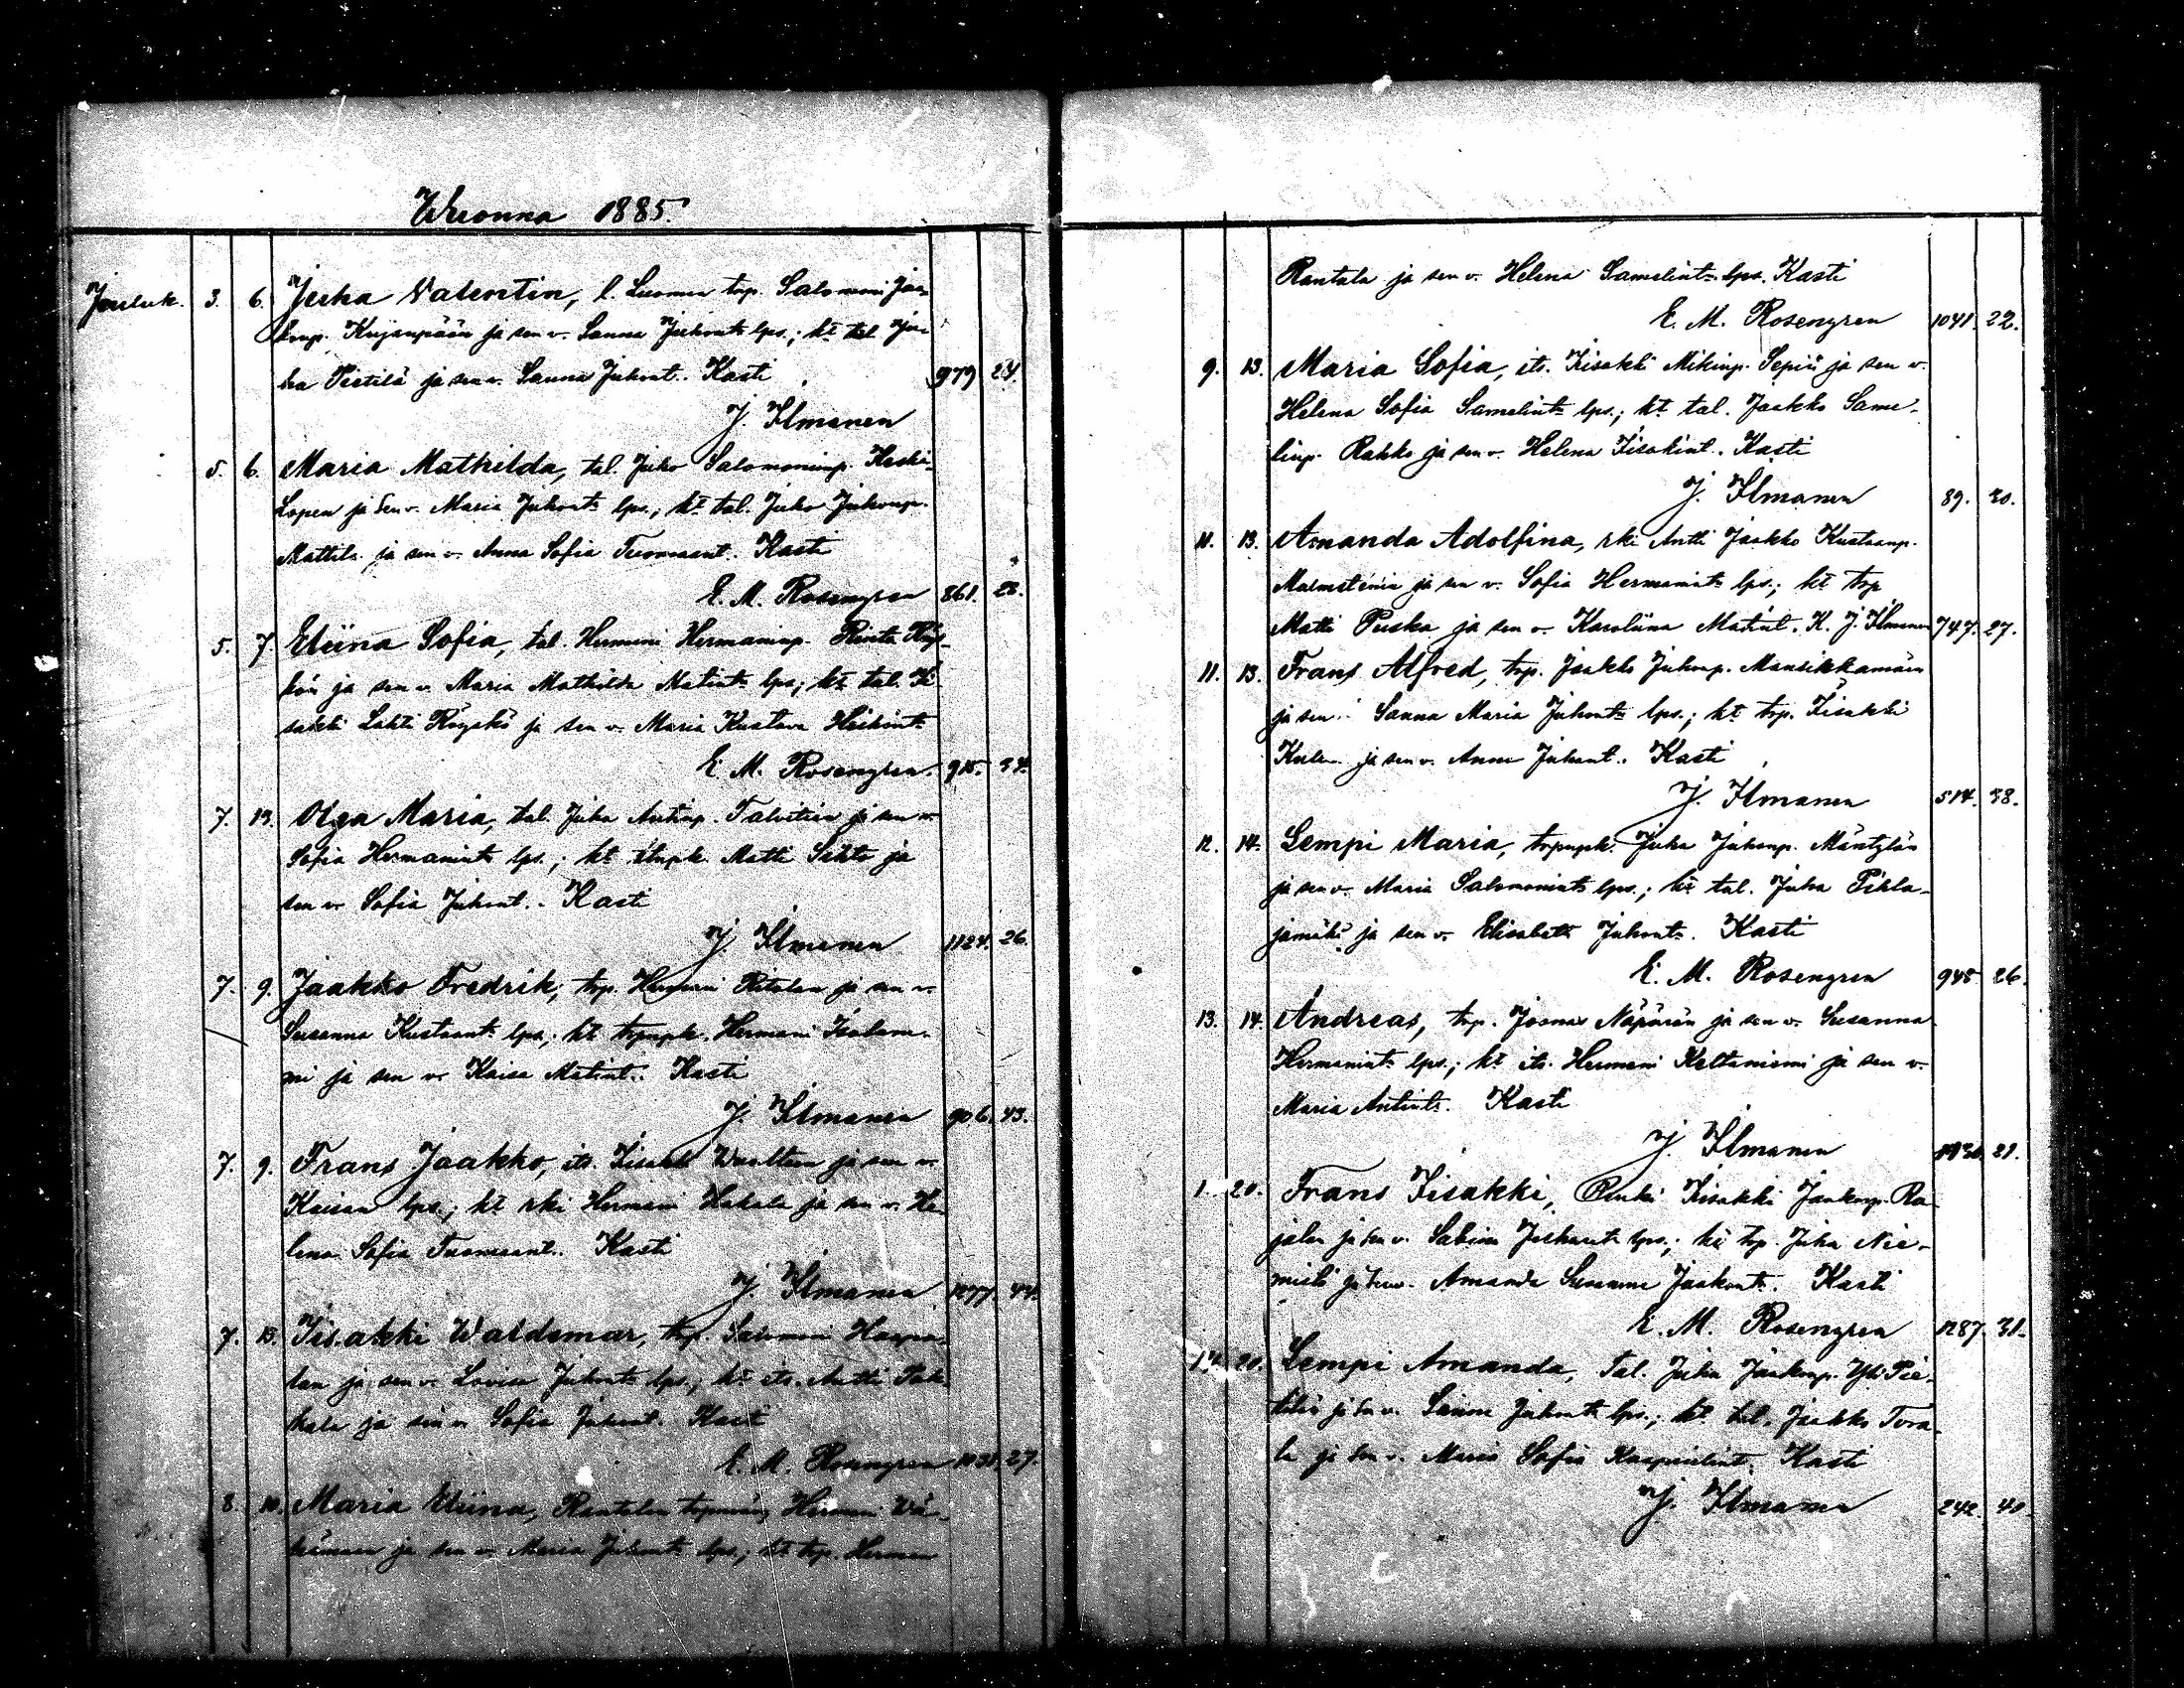 Wuonna 1885
Jouluk. 3. 6. Juha Valentin, l. Luoman trp. Salomoni Jaa-
konp. Kujanpään ja sen v. Sanna Juhont. lps.; kt. tal. Ju-
ha Pietilä ja sen v. Sanna Juhont. Kasti 979 24.
J. Ilmanen
5. 6. Maria Mathilda, tal. Juho Salomoninp. Keski-
Lopen ja sen v. Maria Juhont. lps.; kt. tal. Juho Juhonp.
Mattila ja sen v. Anna Sofia Tuomaant. Kasti
E. M. Rosengren 861. 28.
5. 7. Eliina Sofia, tal. Hermani Hermaninp. Rinta Röy-
kön ja sen v. Maria Mathilda Matint. lps; kt. tal. Ii-
sakki Lahti Röyskö ja sen v. Maria Kustava Heikint.
E. M. Rosengren. 915. 34.
7. 13. Olga Maria, tal. Juha Antinp. Talvitien ja sen v.
Sofia Hermanint. lps.; kt. itsnpk. Matti Sihto ja
sen v. Sofia Juhont. Kasti
J. Ilmanen 1124. 26.
7. 9. Jaakko Fredrik, trp. Hermani Ritalan ja sen v.
Susanna Kustaant. lps.; kt. trpnpk. Hermani Isolam-
mi ja sen v. Kaisa Matint. Kasti
J. Ilmanen 906. 43.
7. 9. Frans Jaakko, its. Iisakki ja sen v.
Kaisan lps.; kt. rki Hermani Hakala ja sen v. He-
lena Sofia Tuomaant. Kasti
J. Ilmanen 1277. 44.
7. 13. Iisakki Waldemar, trp. Salomoni Haapa-
lan ja sen v. Lovisa Juhont. lps.; kt. its. Antti Pak-
kala ja sen v. Sofia Juhont. Kasti
E. M. Rosengren 27.
8. 10. Maria Eliina, Rantalan Hermani Wä-
hämaan ja sen v. Maria Juhont. lps.; kt. trp. Herman
Rantala ja sen v. Helena Samelint. lps. Kasti
E. M. Rosengren 1041. 22.
9. 13. Maria Sofia, its. Iisakki Mikinp. Sepän ja sen v.
Helena Sofia Samelint. lps.; kt. tal. Jaakko Same-
linp. Rahko ja sen v. Helena Iisakint. Kasti
J. Ilmanen 89. 30.
11. 13. Amanda Adolfina, rki Antti Jaakko Kustaanp.
Malmstenin ja sen v. Sofia Hermanint. lps.; kt. trp
Matti Puska ja sen v. Karoliina Matint. K. J. Ilmanen 747. 27.
11. 13. Frans Alfred, trp. Jaakko Juhonp. Mansikkamäen
ja sen v. Sanna Maria Juhont. lps.; kt. trp. Iisakki
ja sen v. Anna Juhont. Kasti
J. Ilmanen 514. 38.
12. 14. Lempi Maria, trpnpk. Juha Juhonp. Mäntylän
ja sen v. Maria Salomonint. lps.; kt. tal. Juha Pihla-
jamäki ja sen v. Elisabett Juhont. Kasti
E. M. Rosengren 945. 26.
13. 14. Andreas, trp. Joonas Näpärän ja sen v. Susanna
Hermanint. lps.; kt. its. Hermani Keltaniemi ja sen v.
Maria Antint. Kasti
J. Ilmanen 29.
1. 20. Frans Iisakki, Iisakki Jaakonp. Ra-
jalan ja sen v. Sabina Juhont. lps.; kt. trp. Juha Nie-
mistö ja sen v. Amanda Susanna Jaakont. Kasti
E. M. Rosengren 1287. 31.
14. 20. Lempi Amanda, tal. Juha Jaakonp. Yli Pie-
tilän ja sen v. Sanna Juhont. lps.; kt. tal. Jaakko Tora-
la ja sen v. Maria Sofia Kaaprielint. Kasti
J. Ilmanen 242. 40.